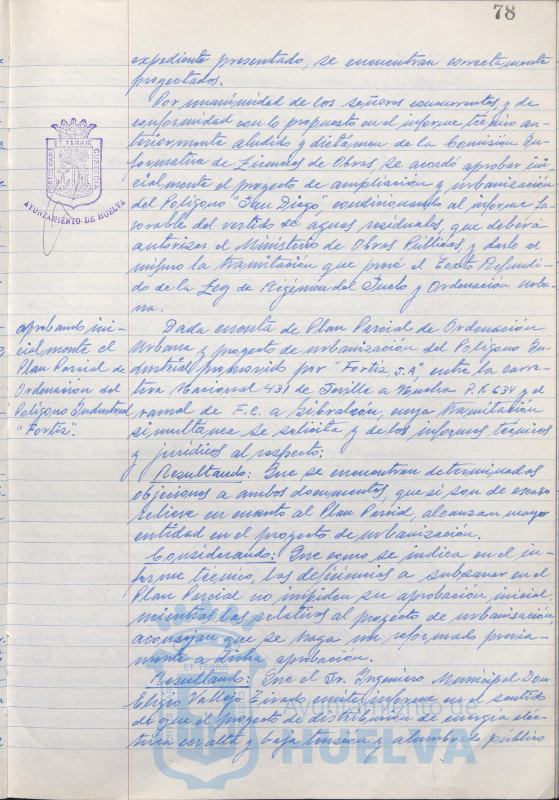 78
expediente presentado, se encuentran correctamente
proyectados.
Por unanimidad de los señores concurrentes, y de
conformidad con lo propuesto en el informe técnico an-
teriormente aludido y dictámen de la Comisión In-
formativa de Licencias de Obras se acordó aprobar ini-
cialmente el proyecto de ampliación y urbanización
del Polígono "San Diego", condicionando al informe fa-
vorable del vertido de aguas residuales, que deberá
autorizar el Ministerio de Obras Públicas, y darle al
mismo la tramitación que prevé el Texto Refundi-
do de la Ley de Régimen del Suelo y Ordenación Urba-
na.
PORTUS MARIS
ET TERRÆ
CUSTODIA
AYUNTAMIENTO DE HUELVA
aprobando ini-
cialmente el
Plan Parcial de
Ordenación del
Polígono Industrial
"Fortiz".
Dada cuenta de Plan Parcial de Ordenación
Urbana y proyecto de urbanización del Polígono In-
dustrial promovido por "Fortiz S.A", entre la carre-
tera Nacional 431 de Sevilla a Huelva P.K 634 y el
ramal de F.C. a Gibraleón, cuya tramitación
simultanea se solicita y de los informes técnicos
y jurídicos al respecto:
Resultando: Que se encuentran determinadas
objeciones a ambos documentos, que si son de escaso
relieve en cuanto al Plan Parcial, alcanzan mayor
entidad en el proyecto de urbanización.
Considerando: Que como se indica en el in-
forme técnico, las deficiencias a subsanar en el
Plan Parcial no impiden su aprobación inicial,
mientras las relativas al proyecto de urbanización
aconsejan que se haga un reformado previa-
mente a dicha aprobación.
Resultando: Que el Sr. Ingeniero Municipal Don
Eligio Vallejo Tirado emite informe en el sentido
de que el proyecto de distribución de energía eléc-
trica en alta y baja tensión y alumbrado público
Ayuntamiento de
HUELVA